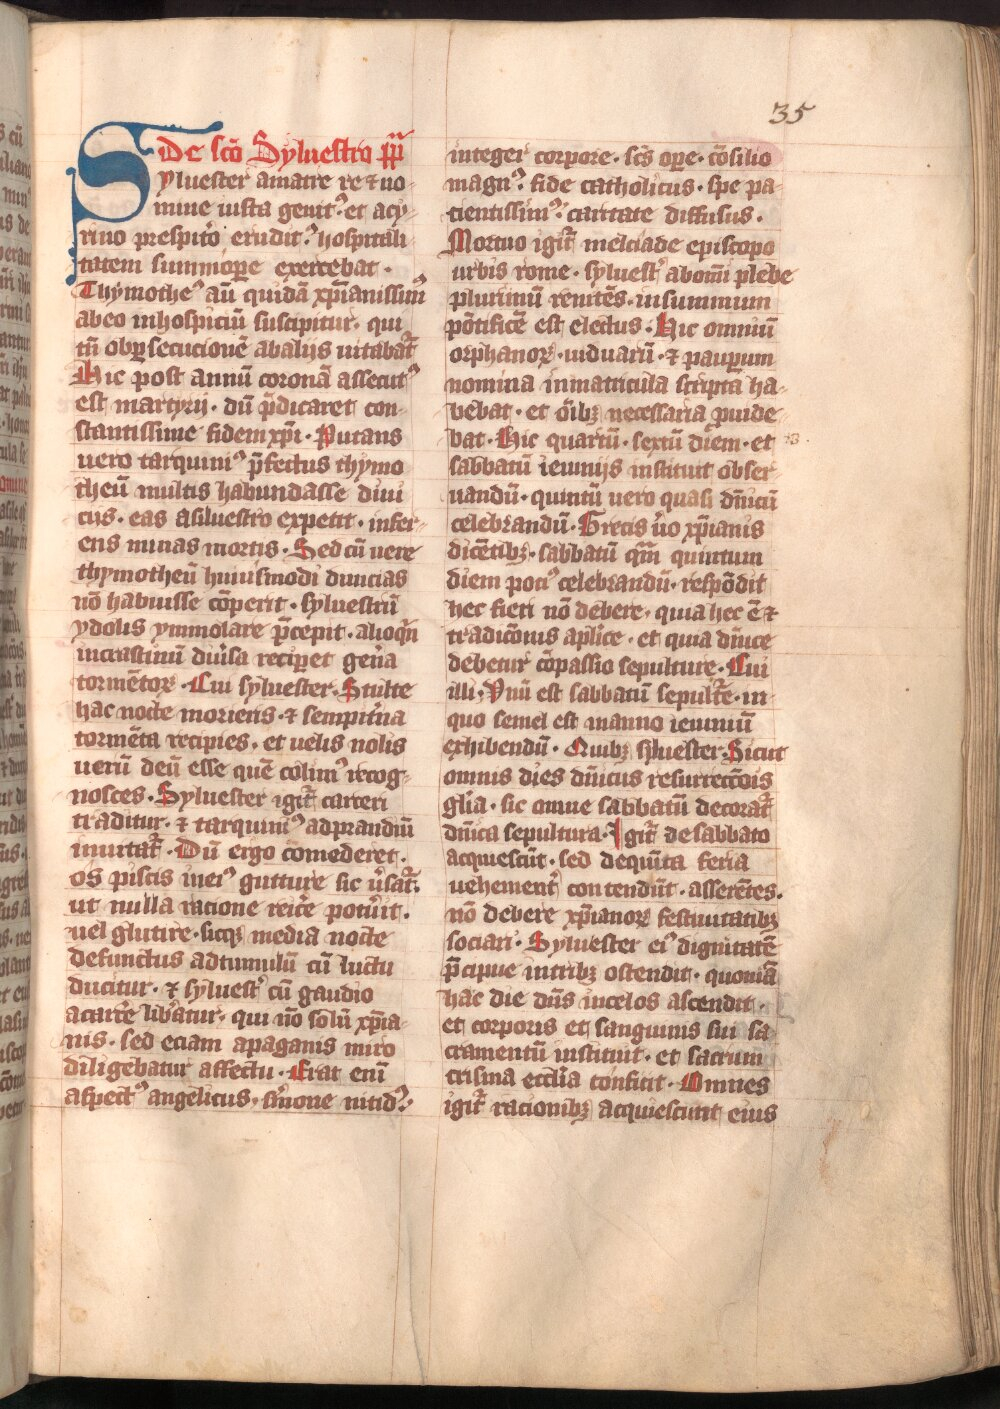 35
De sc̄o Syluestro pp̄
Syluester a matre re ⁊ no-
mine iusta genitꝰ et a cy-
rino prespitō eruditꝰ hospitali-
tatem summoꝑe exercebat ·
Thymotheꝰ aū quidā xp̄ianissimꝰ
ab eo in hospiciū suscipitur · qui
tn̄ ob ꝑsecucionē ab alijs uitabat᷑
Hic post annū coronā assecutꝰ
est martyrij · dū p̄dicaret con-
stantissime fidem xp̄i · Putans
uero tarquiniꝰ p̄fectus thymo
theū multis habundasse diui
cijs · eas a siluestro expetit · infer-
ens minas mortis · Sed cū uere
thymotheū huiusmodi diuicias
nō habuisse cōperit · syluestrū
ydolis ymmolare p̄cepit · alioqn̄
in crastinū diu̓sa reciꝑet gen̓a
tormētoꝝ · Cui syluester · Stulte
hac nocte moriens · ⁊ sempit̓na
tormēta recipies · et uelis nolis
uerū deū esse quē colimꝰ recog-
nosces · Syluester igit᷑ carceri
traditur · ⁊ tarquiniꝰ ad prandiū
inuitat᷑ · Dū ergo comederet ·
os piscis in eiꝰ gutture sic u̓sat᷑ ·
ut nulla racione reic̓e potu̓it ·
uel glutire · sicqꝫ media nocte
defunctus ad tumulū cū luctu
ducitur · ⁊ syluestꝰ cū gaudio
a carc̓e lib̓atur · qui nō solū xp̄ia-
nis · sed eciam a paganis miro
diligebatur affectu · Erat enī
aspectꝰ angelicus · s̓mone nitidꝰ ·
integer corpore · sc̄s oꝑe · cōsilio
magnꝰ · fide catholicus · spe pa-
cientissimꝰ · caritate diffusus ·
Mortuo igit᷑ melciade episcopo
urbis rome · syluestꝰ ab om̄i plebe
plurimū renitēs · in summum
pōtificē est electus · Hic omniū
orphanoꝝ · uiduarū · ⁊ pauꝑum
nomina in matricula scripta ha-
bebat · et oībꝫ necessaria ꝓuide-
bat · Hic quartū · sextū diem · et
sabbatū ieiunijs instituit obser-
uandū · quintū uero quasi dn̄icū
celebrandū · Grecis u̓o xp̄ianis
dicētibꝫ · sabbatū qm̄ quintum
diem potiꝰ celebrandū · respōdit
hec fieri nō debere · quia hec ē ⁊
tradic̄onis ap̄lice · et quia dn̄ice
debetur cōpassio sepulture · Cui
illi · Vnū est sabbatū sepult̓e · in
quo semel est in anno ieiuniū
exhibendū · Quibꝫ syluester · Sicut
omnis dies dn̄icus resurrecc̄ois
gl̓ia · sic omne sabbatū decorat᷑
dn̄ica sepultura · Igit᷑ de sabbato
acquiescūt · sed de quīta feria
uehementꝰ contendūt · asserētes ·
nō debere xp̄ianoꝝ festiuitatibꝫ
sociari · Syluester eiꝰ dignitatē
p̄cipue in tribꝫ ostendit · quoniā
hac die dn̄s in celos ascendit ·
et corporis et sanguinis sui sa-
cramentū instituit · et sacrum
crisma eccl̓ia confitit · Omnes
igit᷑ racionibꝫ acquiescunt eius